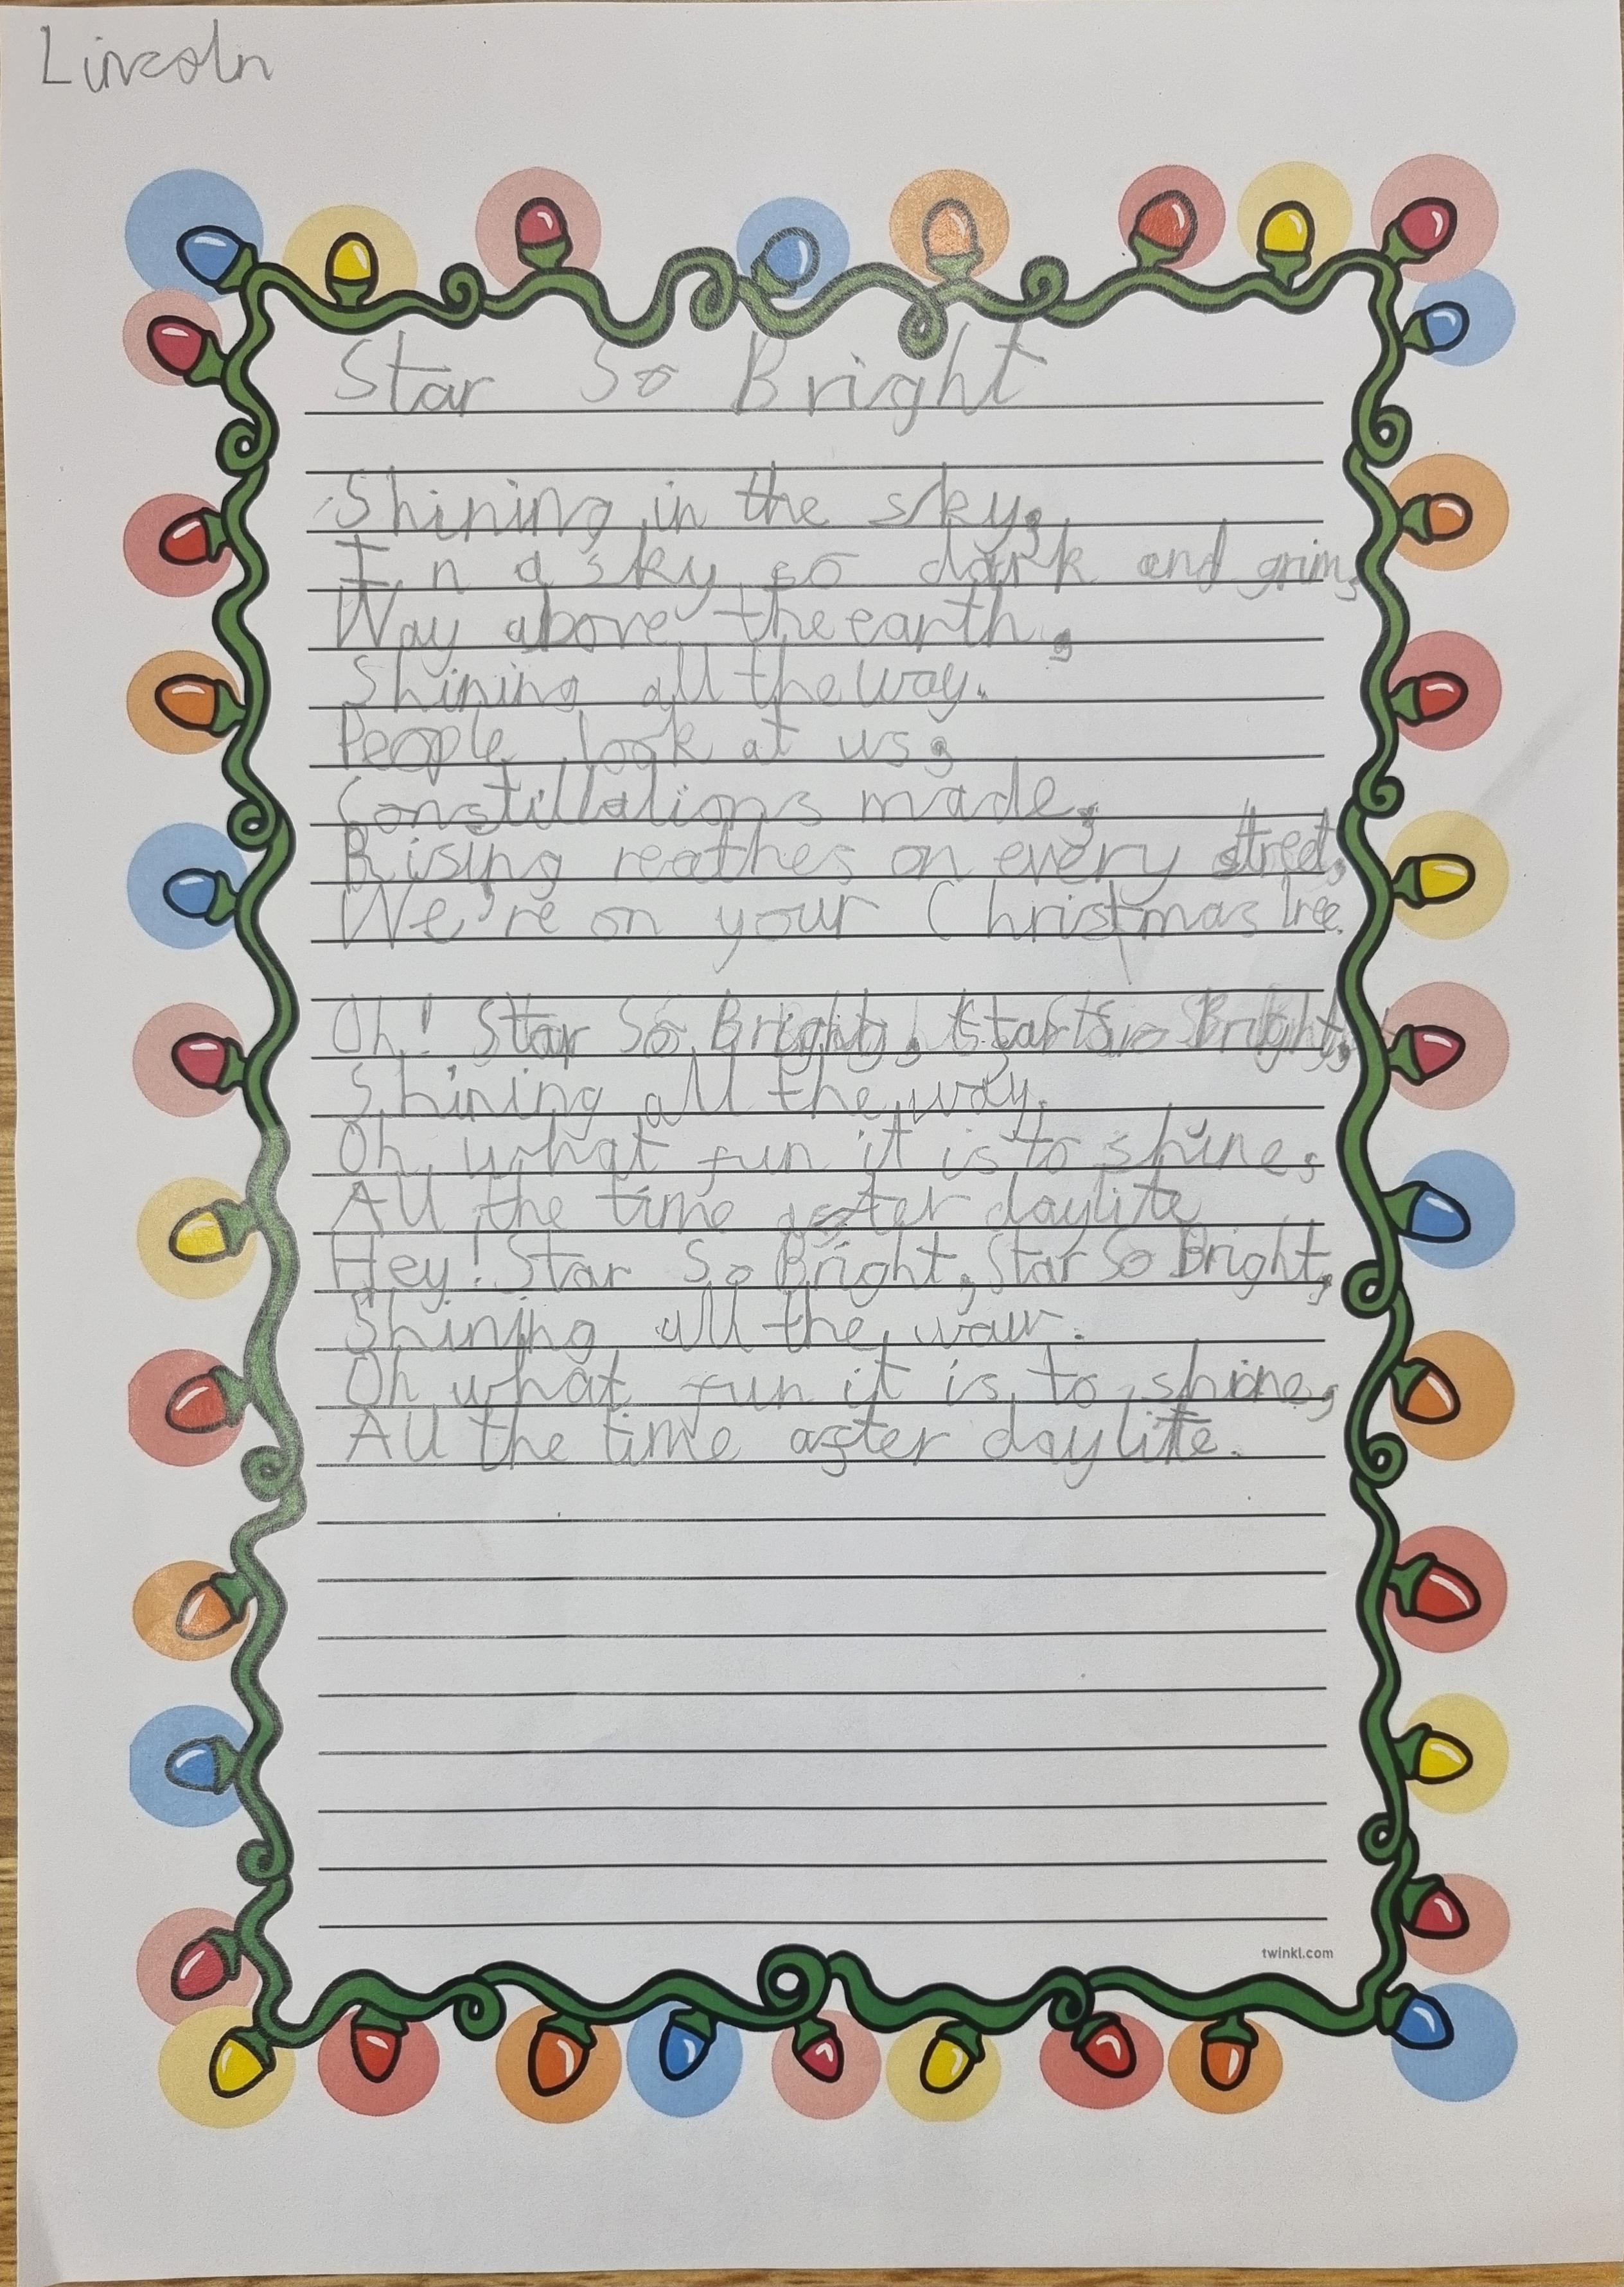 Lincoln
Star So Bright
Shining in the sky,
In a sky so dark and grim,
Way above the earth,
Shining all the way.
People look at us,
Constillations made,
Rising reathes on every street,
We're on your Christmas tree.
Oh! Star So Bright, Star So Bright,
Shining all the way.
Oh what fun it is to shine,
All the time after daylite
Hey! Star So Bright, Star So Bright,
Shining all the way.
Oh what fun it is to shine,
All the time after daylite.
twinkl.com